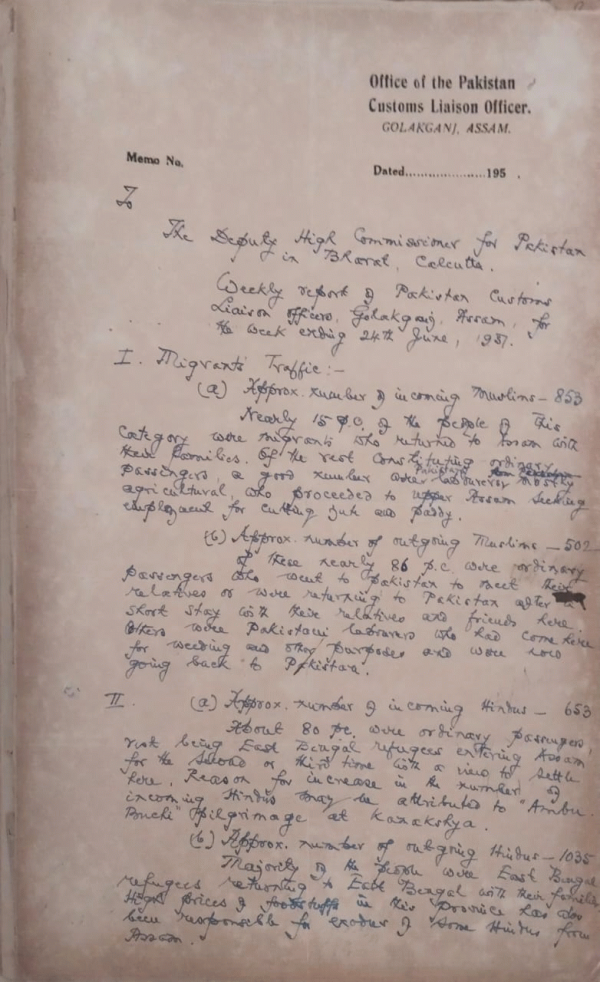 Office of the Pakistan
Customs Liaison Officer.
GOLAKGANJ, ASSAM.
Memo No.
Dated.....................195 .
To
The Deputy High Commissioner for Pakistan
in Bharat, Calcutta.
Weekly report of Pakistan Customs
Liaison officers, Golakganj, Assam, for
the week ending 24th June, 1951.
I. Migrants' Traffic:-
(a) Approx. number of incoming Muslims - 853
Nearly 15 p.c. of the people of this
category were migrants who returned to Assam with
their families. Of the rest constituting ordinary
passengers, a good number were Pakistani labourers mostly
agricultural, who proceeded to upper Assam seeking
employment for cutting jute and paddy.
(b) Approx. number of outgoing Muslims - 502
Of these nearly 86 p.c. were ordinary
passengers who went to Pakistan to meet their
relatives or were returning to Pakistan after a
short stay with their relatives and friends here.
Others were Pakistani labourers who had come here
for weeding and other purposes and were now
going back to Pakistan.
II. (a) Approx. number of incoming Hindus - 653
About 80 pc. were ordinary passengers,
rest being East Bengal refugees entering Assam
for the second or third time with a view to settle
here. Reason for increase in the number of
incoming Hindus may be attributed to "Ambu
Buchi" pilgrimage at Kamakshya.
(b) Approx. number of outgoing Hindus - 1035
Majority of the people were East Bengal
refugees returning to East Bengal with their families
High prices of foodstuffs in this Province has also
been responsible for exodus of some Hindus from
Assam.